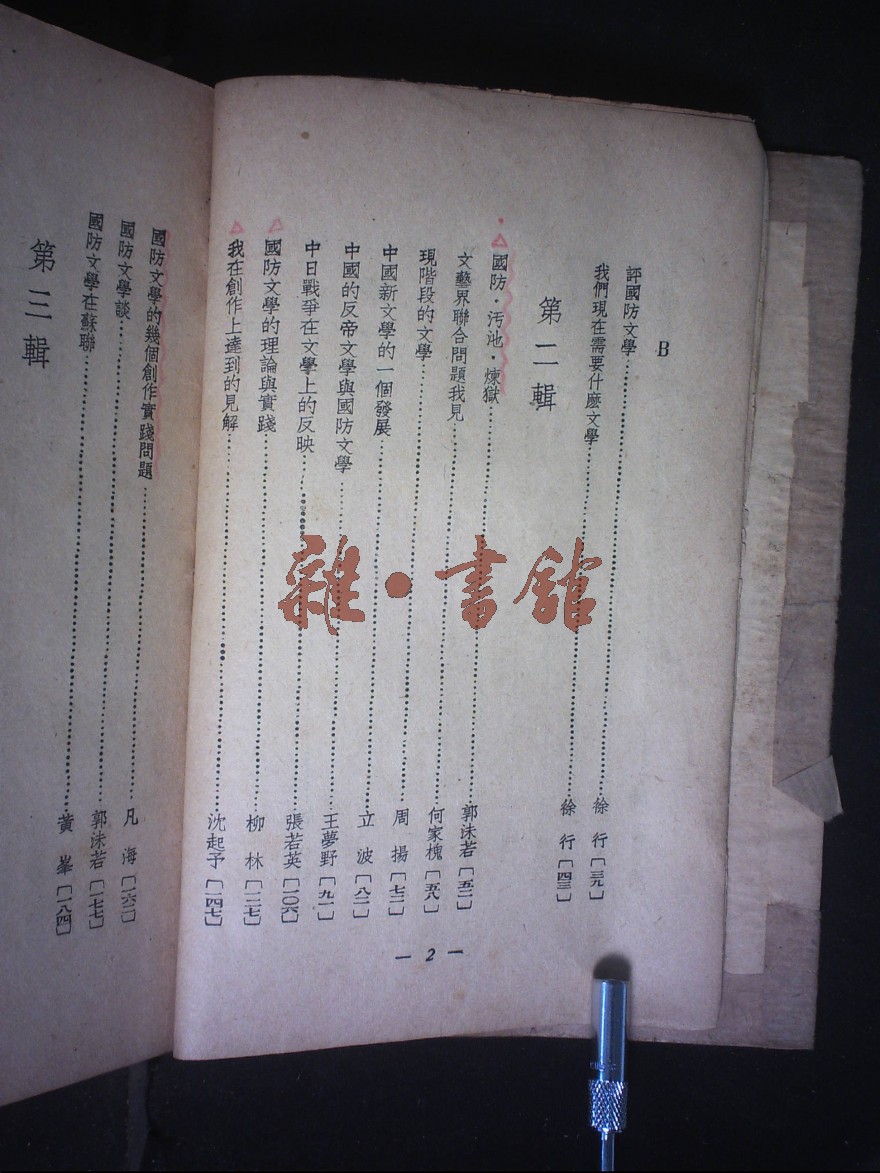 B
評國防文學 徐行 [三九]
我們現在需要什麼文學 徐行 [四三]
第二輯
國防·汚池·煉獄 郭沫若 [五二]
文藝界聯合問題我見 何家槐 [五八]
現階段的文學 周揚 [七二]
中國新文學的一個發展 立波 [八二]
中國的反帝文學與國防文學 王夢野 [九一]
中日戰爭在文學上的反映 張若英 [一〇六]
國防文學的理論與實踐 柳林 [一二七]
我在創作上達到的見解 沈起予 [一四七]
— 2 —
國防文學的幾個創作實踐問題 凡海 [一六二]
國防文學談 郭沫若 [一七七]
國防文學在蘇聯 黃峯 [一八四]
第三輯
雜·書館